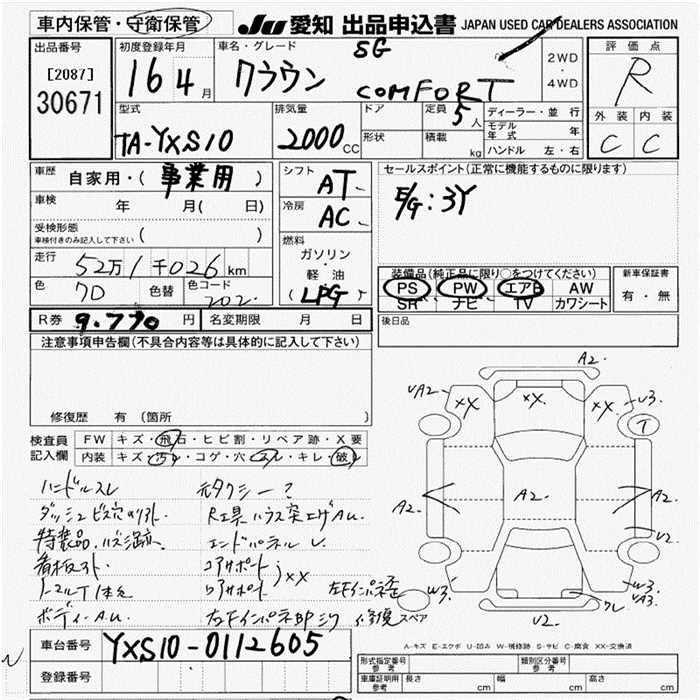 車内保管・守衛保管
JU 愛知 出品申込書 JAPAN USED CAR DEALERS ASSOCIATION
出品番号
[2087]
30671
初度登録年月
16 4月
車名・グレード
SG
クラウン COMFORT
2WD
・
4WD
評価点
R
外装 内装
C C
型式
TA-YXS10
排気量
2000 CC
ドア
形状
定員 5人
積載 kg
ディーラー・並行
モデル年式 年
ハンドル 左・右
車歴
自家用・( 事業用 )
車検 年 月( 日)
受検形態
車検付きのみ記入して下さい ( )
走行
52万1千026km
色
7D
色替
色コード
202.
シフト
AT
冷房
AC
燃料
ガソリン
・
軽油
(LPG)
セールスポイント(正常に機能するものに限ります)
E/G:3Y
装備品(純正品に限り○をつけてください)
PS PW エアB AW
SR ナビ TV カワシート
新車保証書
有・無
R券 9.770円
名変期限 月 日
後日品
注意事項申告欄(不具合内容等は具体的に記入して下さい)
修復歴 有(箇所 )
検査員
記入欄
FW キズ・飛石・ヒビ割・リペア跡・X要
内装 キズ・汚レ・コゲ・穴・スレ・キレ・破レ
ハンドルスレ
元タクシー?
ダッシュビス穴
R工具ハウス突上ゲAu.
特装品
エンドパネルU.
看板
コアサポート
ノーマルT1本欠
ロアサポート
XX
ボディーA.U.
修復
スペア
A2.
VA2
XX
XX.
XX
W3.
T
A2
A2.
A2
U2
W3
クレ
W3.
VA3.
U2.
A-キズ E-エクボ U-凹み W-補修跡 S-サビ C-腐食 XX-交換済
車台番号
YXS10-0112605
登録番号
型式指定番号
参考
類別区分番号
参考
車庫証明用
参考
長さ cm 幅 cm 高さ cm